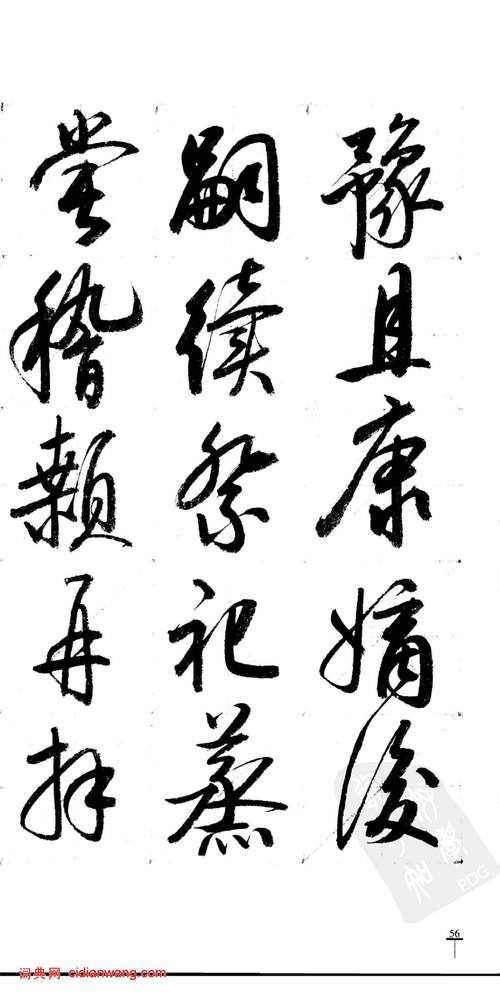 豫且康嫡後
嗣續祭祀蒸
嘗稽顙再拜
56
词典网 cidianwang.com
PDG